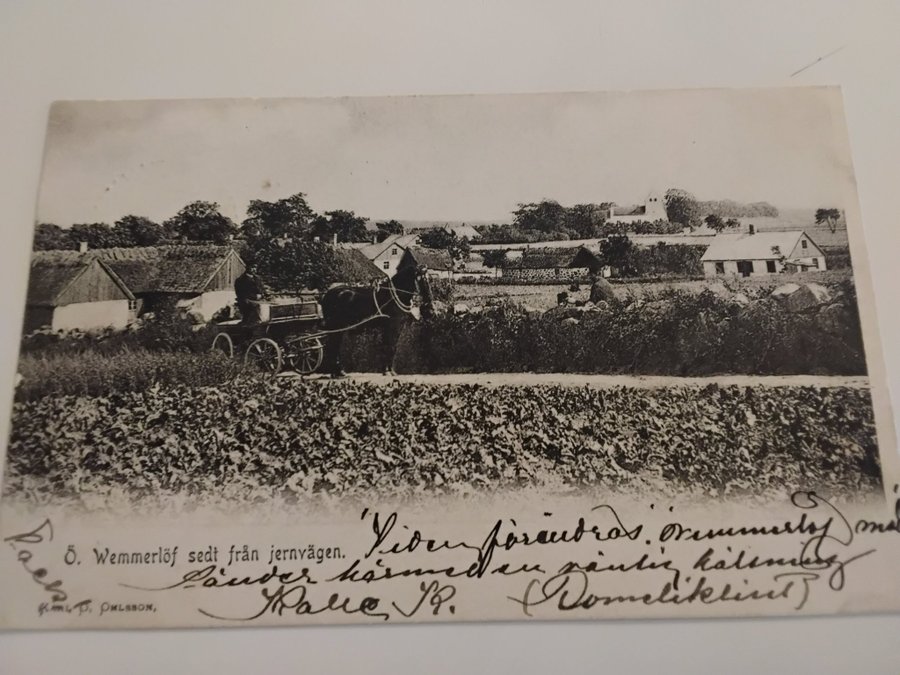 Ö. Wemmerlöf sedt från jernvägen.
"Tiden förändras". Ö. Wemmerlöf
Sänder härmed en väntig hälsning
Kalle K.
KARL P. OHLSSON,